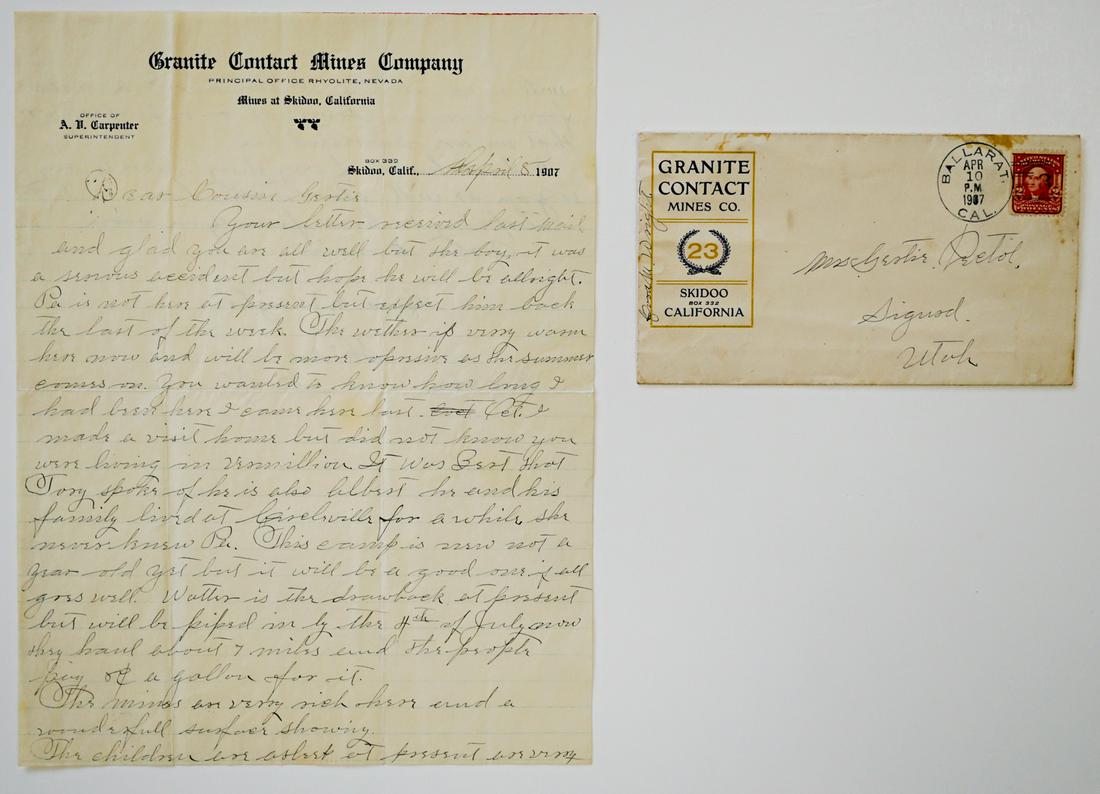 Granite Contact Mines Company
PRINCIPAL OFFICE RHYOLITE, NEVADA
Mines at Skidoo, California
OFFICE OF
A. V. Carpenter
SUPERINTENDENT
BOX 332
Skidoo, Calif., April 8 1907
Dear Cousin Gertie
Your letter received last mail
and glad you are all well but the boy, it was
a serious accident but hope he will be allright.
Pa is not here at present but expect him back
the last of the week. The wether is verry warm
here now and will be more opresive as the summer
comes on. You wanted to know how long I
had been here I came here last Oct. I
made a visit home but did not know you
were living in Vermillion It was Bert that
Tory spoke of he is also Albert he and his
family lived at Circleville for a while, she
never knew Pa. This camp is new not a
year old yet but it will be a good one if all
goes well. Watter is the drawback at present
but will be piped in by the 4th of July, now
they haul about 7 miles and the people
pay a gallon for it.
The mines are verry rich here and a
wonderfull surface showing.
The children are asleep at present are very
GRANITE
CONTACT
MINES CO.
23
SKIDOO
BOX 332
CALIFORNIA
BALLARAT,
APR
10
P.M.
1907
CAL.
Mrs Gertie
Sigurd.
Utah